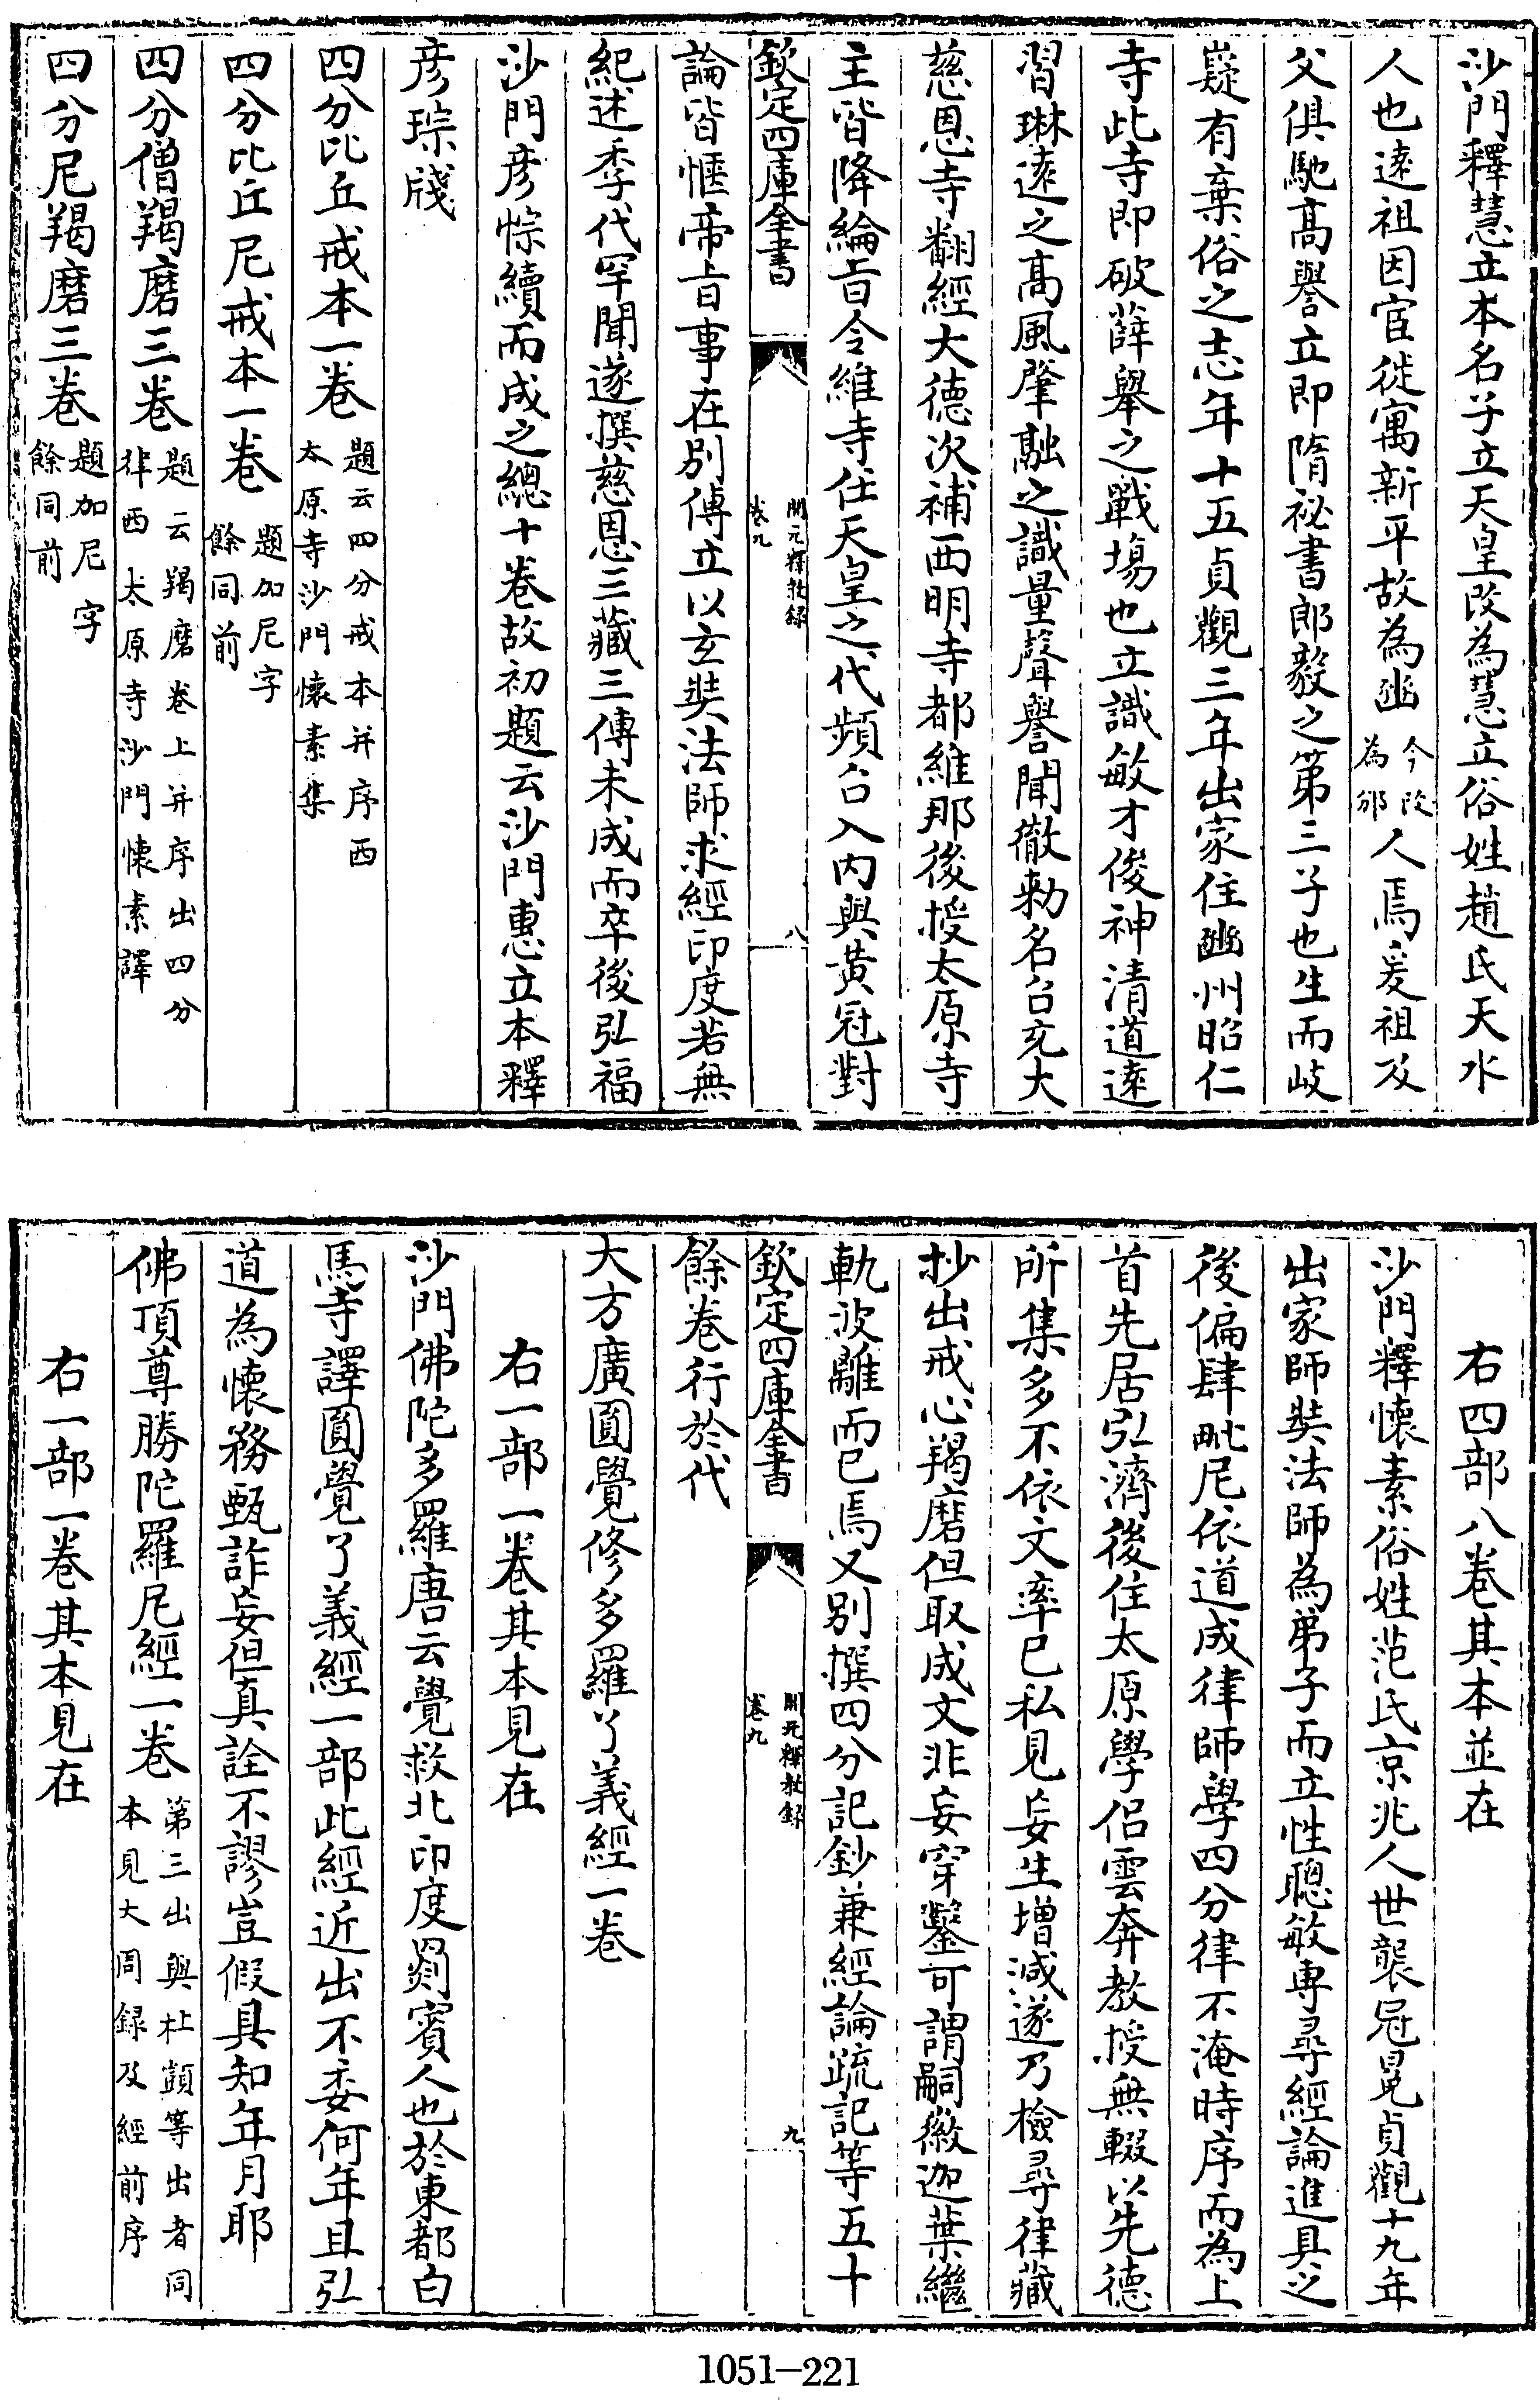 沙門釋慧立本名子立天皇改為慧立俗姓趙氏天水
人也遠祖因宦徙寓新平故為豳今改為邠人焉爰祖及
父俱馳高譽立即隋祕書郎毅之第三子也生而岐
嶷有棄俗之志年十五貞觀三年出家住豳州昭仁
寺此寺即破薛舉之戰場也立識敏才俊神清道遠
習琳遠之高風肇融之識量聲譽聞徹勅名召充大
慈恩寺翻經大德次補西明寺都維那後授太原寺
主皆降綸旨令維寺任天皇之代頻召入內與黃冠對
欽定四庫全書
開元釋教錄
卷九
八
論皆愜帝旨事在別傳立以玄奘法師求經印度若無
紀述季代罕聞遂撰慈恩三藏三傳未成而卒後弘福
沙門彥悰續而成之總十卷故初題云沙門惠立本釋
彥琮牋
四分比丘戒本一卷題云四分戒本并序西太原寺沙門懷素集
四分比丘尼戒本一卷題加尼字餘同前
四分僧羯磨三卷題云羯磨卷上并序出四分律西太原寺沙門懷素譯
四分尼羯磨三卷題加尼字餘同前
右四部八卷其本並在
沙門釋懷素俗姓范氏京兆人世襲冠冕貞觀十九年
出家師奘法師為弟子而立性聰敏專尋經論進具之
後偏肆毗尼依道成律師學四分律不淹時序而為上
首先居弘濟後住太原學侶雲奔教授無輟以先德
所集多不依文率已私見妄生增減遂乃檢尋律藏
抄出戒心羯磨但取成文非妄穿鑿可謂嗣徽迦葉繼
軌波離而已焉又別撰四分記鈔兼經論疏記等五十
欽定四庫全書
開元釋教錄
卷九
九
餘卷行於代
大方廣圓覺修多羅了義經一卷
右一部一卷其本見在
沙門佛陀多羅唐云覺救北印度罽賓人也於東都白
馬寺譯圓覺了義經一部此經近出不委何年且弘
道為懷務甄詐妄但真詮不謬豈假具知年月耶
佛頂尊勝陀羅尼經一卷第三出與杜顗等出者同本見大周錄及經前序
右一部一卷其本見在
1051-221